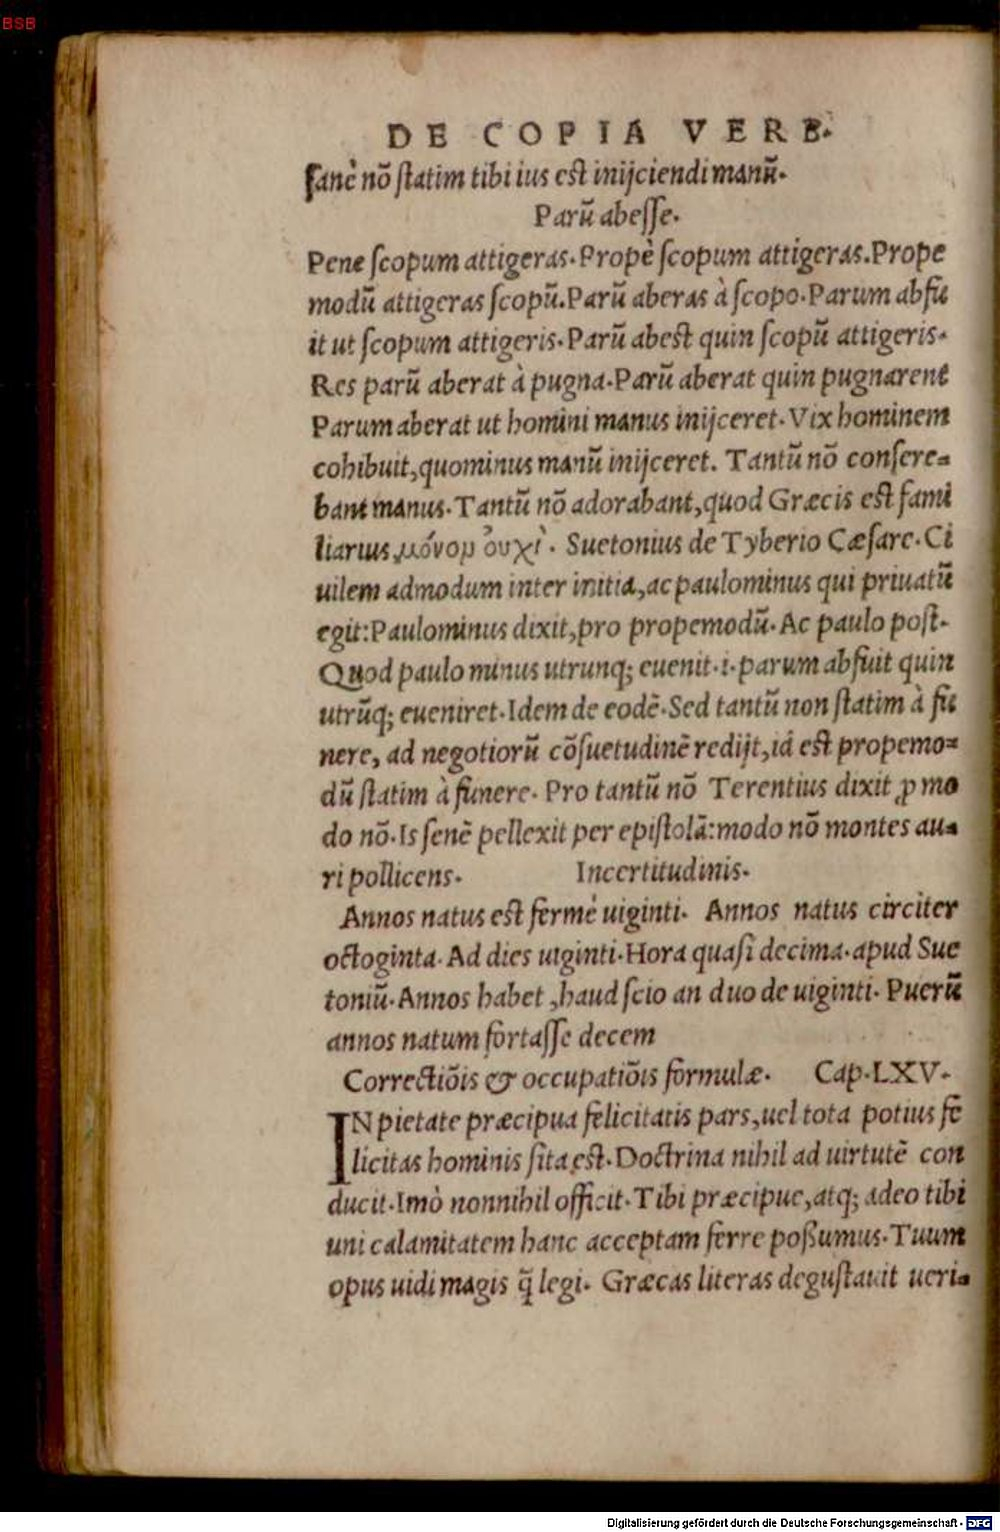 BSB
DE COPIA VERB.
ſanè nõ ſtatim tibi ius eſt inijciendi manũ.
Parũ abeſſe.
Pene ſcopum attigeras. Propè ſcopum attigeras. Prope
modũ attigeras ſcopũ. Parũ aberas à ſcopo. Parum abfu
it ut ſcopum attigeris. Parũ abeſt quin ſcopũ attigeris.
Res parũ aberat à pugna. Parũ aberat quin pugnarent
Parum aberat ut homini manus inijceret. Vix hominem
cohibuit, quominus manũ inijceret. Tantũ nõ conſere=
bant manus. Tantũ nõ adorabant, quod Græcis eſt fami
liarius, μόνομ ὀυχὶ. Suetonius de Tyberio Cæſare. Ci
uilem admodum inter initia, ac paulominus qui priuatũ
egit: Paulominus dixit, pro propemodũ. Ac paulo poſt.
Quod paulo minus utrunq; euenit. i. parum abfuit quin
utrũq; eueniret. Idem de eodẽ. Sed tantũ non ſtatim à fu
nere, ad negotiorũ cõſuetudinẽ redijt, id eſt propemo=
dũ ſtatim à funere. Pro tantũ nõ Terentius dixit ꝓ mo
do nõ. Is ſenẽ pellexit per epiſtolã: modo nõ montes au=
ri pollicens. Incertitudinis.
Annos natus eſt fermè uiginti. Annos natus circiter
octoginta. Ad dies uiginti. Hora quaſi decima. apud Sue
toniũ. Annos habet, haud ſcio an duo de uiginti. Puerũ
annos natum fortaſſe decem
Correctiõis & occupatiõis formulæ. Cap. LXV.
IN pietate præcipua felicitatis pars, uel tota potius fe
licitas hominis ſita eſt. Doctrina nihil ad uirtutẽ con
ducit. Imò nonnihil officit. Tibi præcipue, atq; adeo tibi
uni calamitatem hanc acceptam ferre poßumus. Tuum
opus uidi magis q̃ legi. Græcas literas deguſtauit ueri=
Digitalisierung gefördert durch die Deutsche Forschungsgemeinschaft - DFG